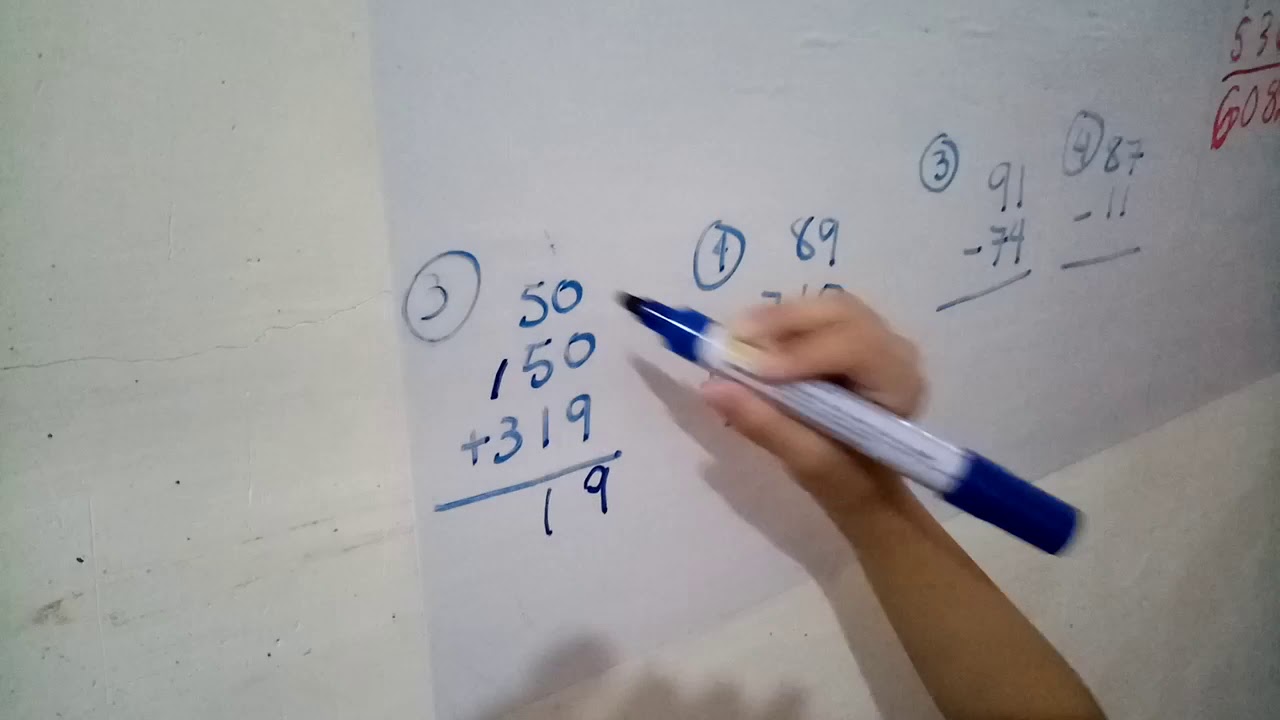 ③ 50
150
+319
19
④ 89
③ 91
-74
④ 87
-11
53
608